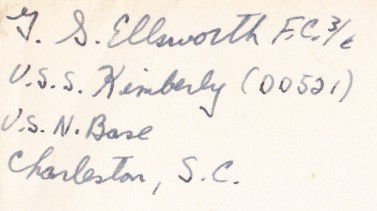 G. S. Ellsworth F.C. 3/c
U.S.S. Kimberly (DD521)
U.S.N. Base
Charleston, S.C.